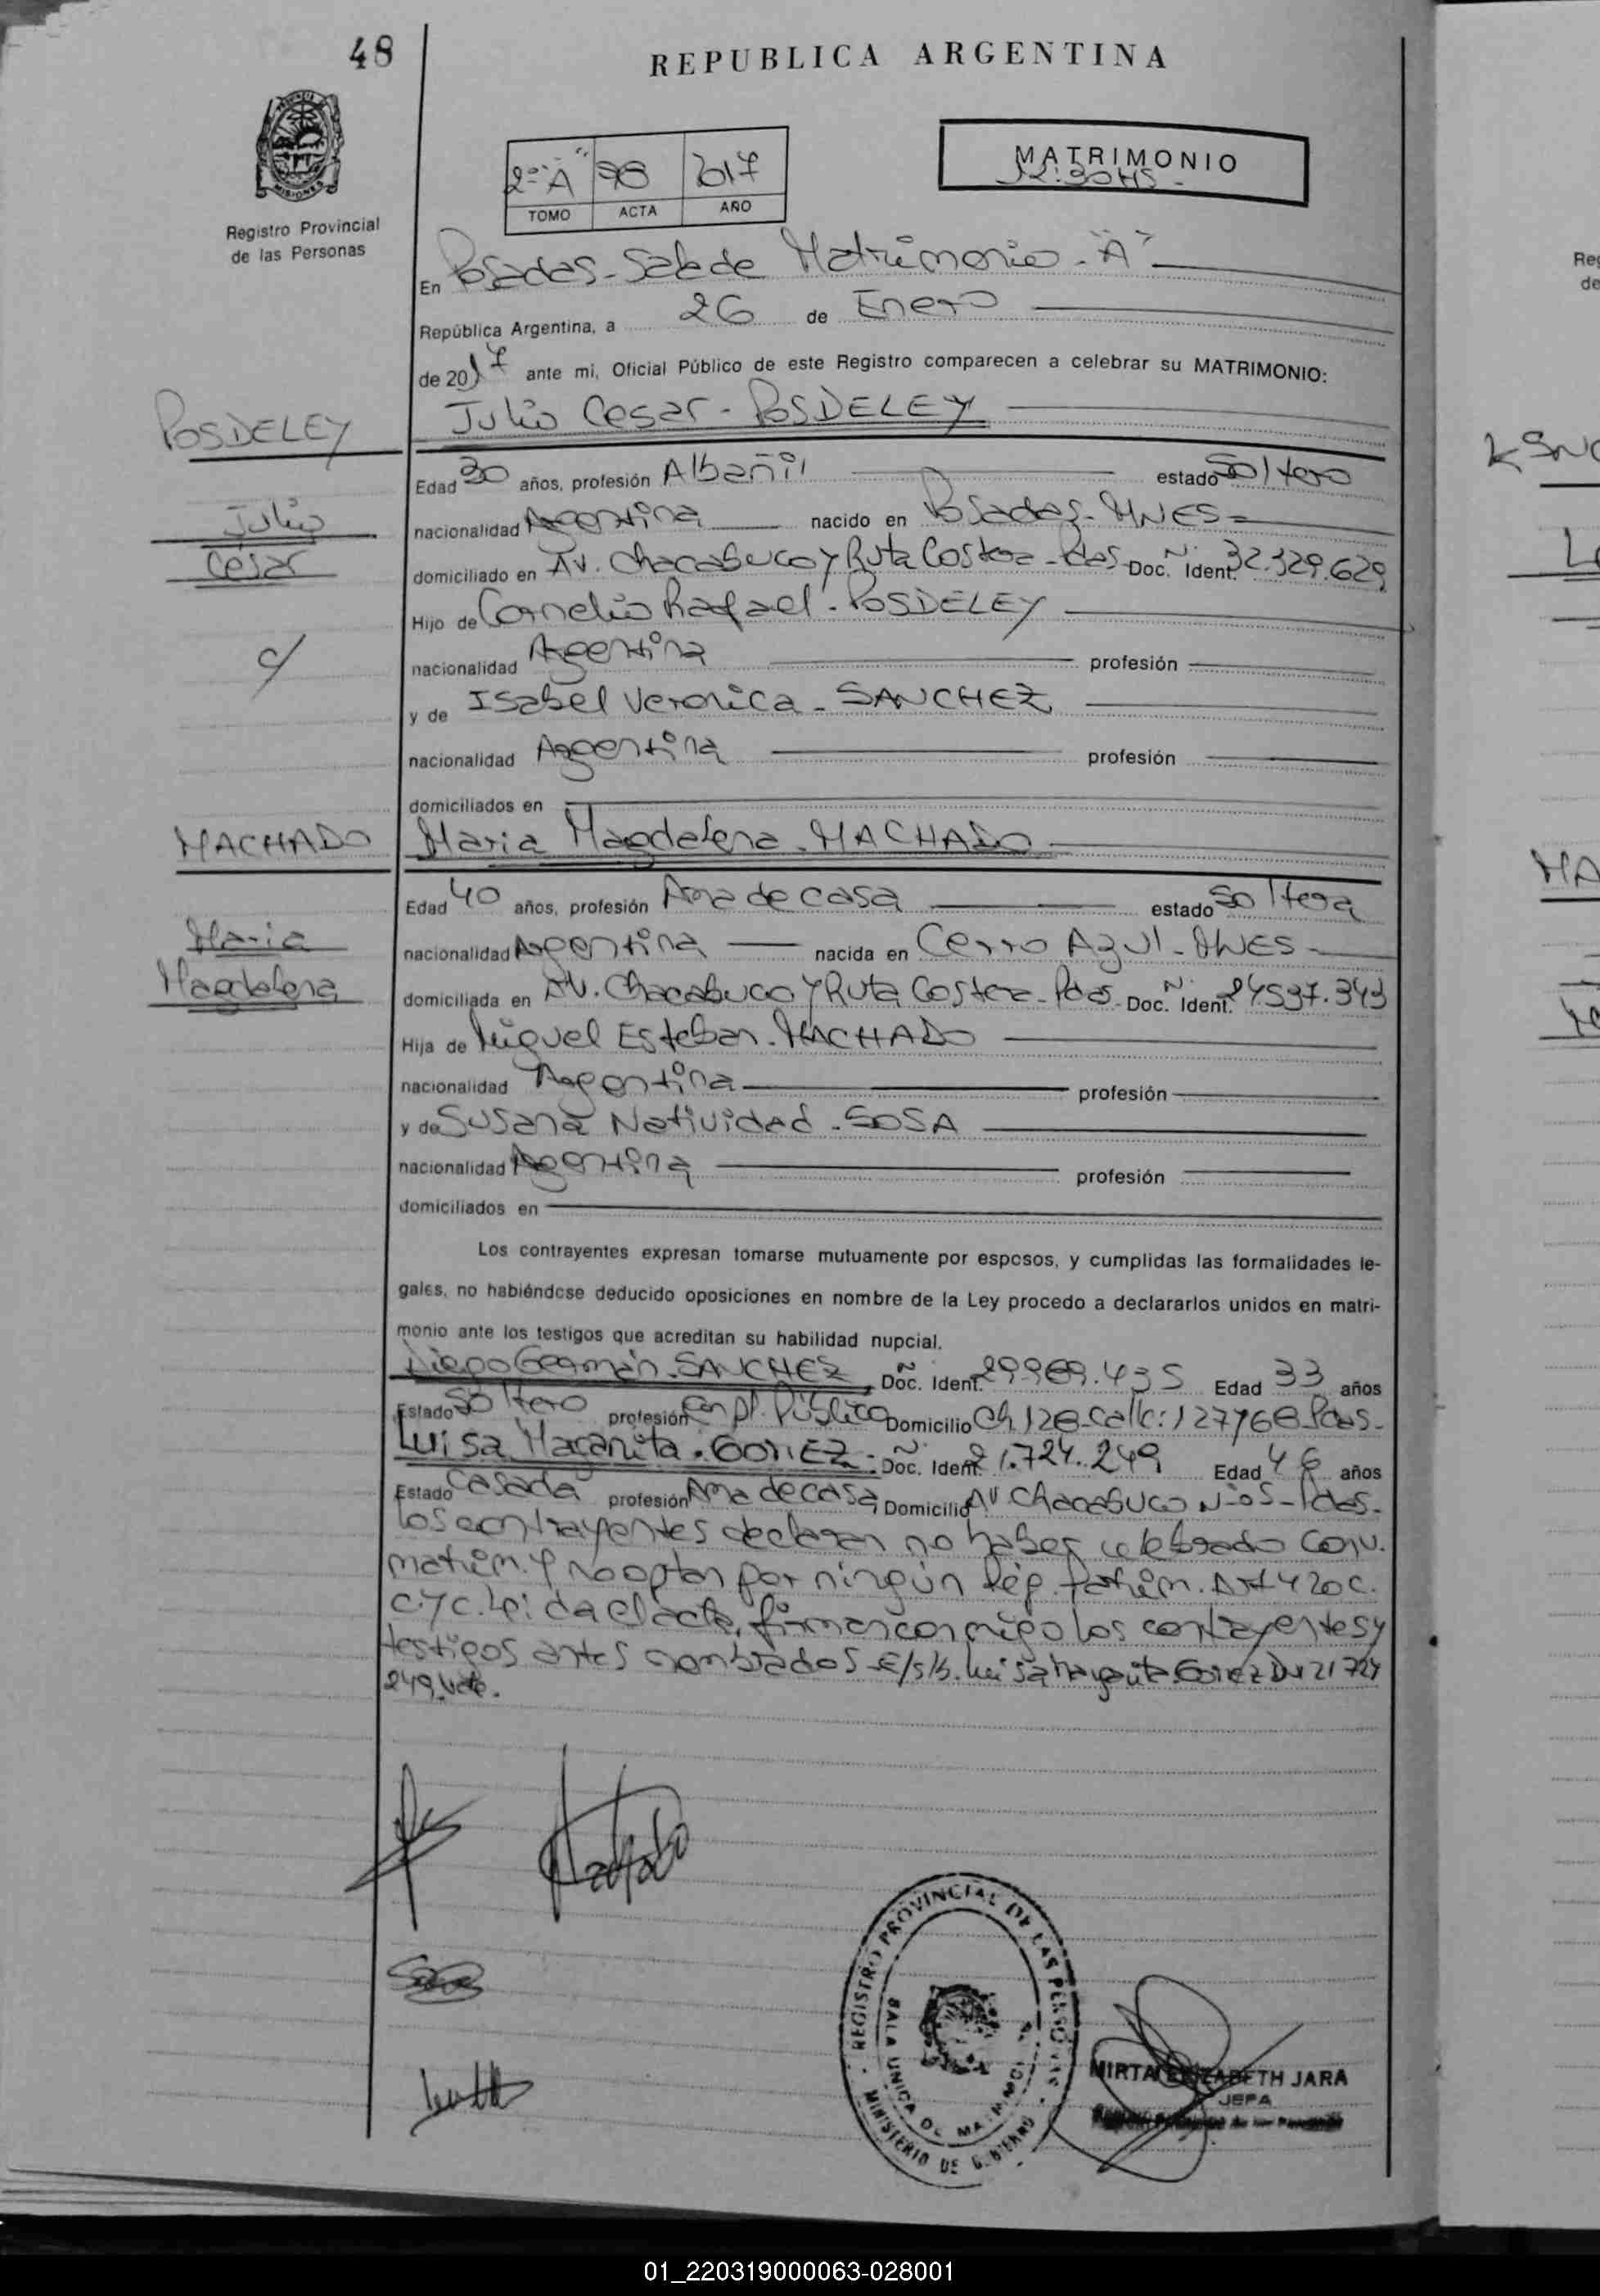 48
REPUBLICA ARGENTINA
PROVINCIA DE MISIONES
Registro Provincial
de las Personas
2º "A" 98 2017
TOMO ACTA AÑO
MATRIMONIO
12:30 HS -
En Posadas - Sala de Matrimonio - "A"
República Argentina, a 26 de Enero
de 2017 ante mi, Oficial Público de este Registro comparecen a celebrar su MATRIMONIO:
POSDELEY
Julio Cesar - POSDELEY
Edad 30 años, profesión Albañil estado Soltero
Julio
nacionalidad Argentina nacido en Posadas - MNES =
César
domiciliado en Av. Chacabuco y Ruta Costera - Pdas - Doc. Ident. Nº 32.329.629
Hijo de Cornelio Rafael - POSDELEY
c/
nacionalidad Argentina profesión
y de Isabel Veronica - SANCHEZ
nacionalidad Argentina profesión
domiciliados en
MACHADO
Maria Magdalena - MACHADO
Edad 40 años, profesión Ama de casa estado Soltera
Maria
nacionalidad Argentina nacida en Cerro Azul - MNES -
Magdalena
domiciliada en Av. Chacabuco y Ruta Costera - Pdas - Doc. Ident. Nº 24.537.343
Hija de Miguel Esteban - MACHADO
nacionalidad Argentina profesión
y de Susana Natividad - SOSA
nacionalidad Argentina profesión
domiciliados en
Los contrayentes expresan tomarse mutuamente por esposos, y cumplidas las formalidades le-
gales, no habiéndose deducido oposiciones en nombre de la Ley procedo a declararlos unidos en matri-
monio ante los testigos que acreditan su habilidad nupcial.
Diego Germán - SANCHEZ, Doc. Ident. 29.969.435 Edad 33 años
Estado Soltero profesión Empl. Público Domicilio Ch. 128 - Calle: 127 Pdas -
Luisa Margarita - GOMEZ - Doc. Ident. 21.724.249 Edad 46 años
Estado Casada profesión Ama de casa Domicilio Av. Chacabuco Pdas -
los contrayentes declaran no haber celebrado conv.
matrim. y no optan por ningún Rég. Patrim. Art 420 C.
C. y C. Leida el acta, firman conmigo los contrayentes y
testigos antes nombrados - E/s/b. Luisa Margarita Gomez 21 724
249. Vale.
Machado
REGISTRO PROVINCIAL DE LAS PERSONAS
SALA UNICA DE MATRIMONIO
MINISTERIO DE GOBIERNO
MIRTA ELIZABETH JARA
JEFA
Reg
de
MA
01_220319000063-028001